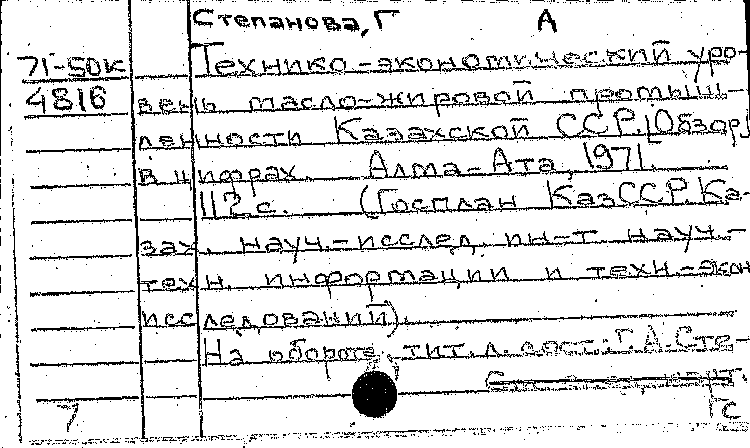 Степанова, Г А
71-50к Технико-экономический уро-
4816 вень масло-жировой промыш-
ленности Казахской ССР. [Обзор]
в цифрах. Алма-Ата, 1971.
112 с. (Госплан КазССР. Ка-
зах. науч.-исслед. ин-т науч.-
техн. информации и техн.-экон
исследований).
На обороте тит. л. сост.: Г. А. Сте-
7 ГС